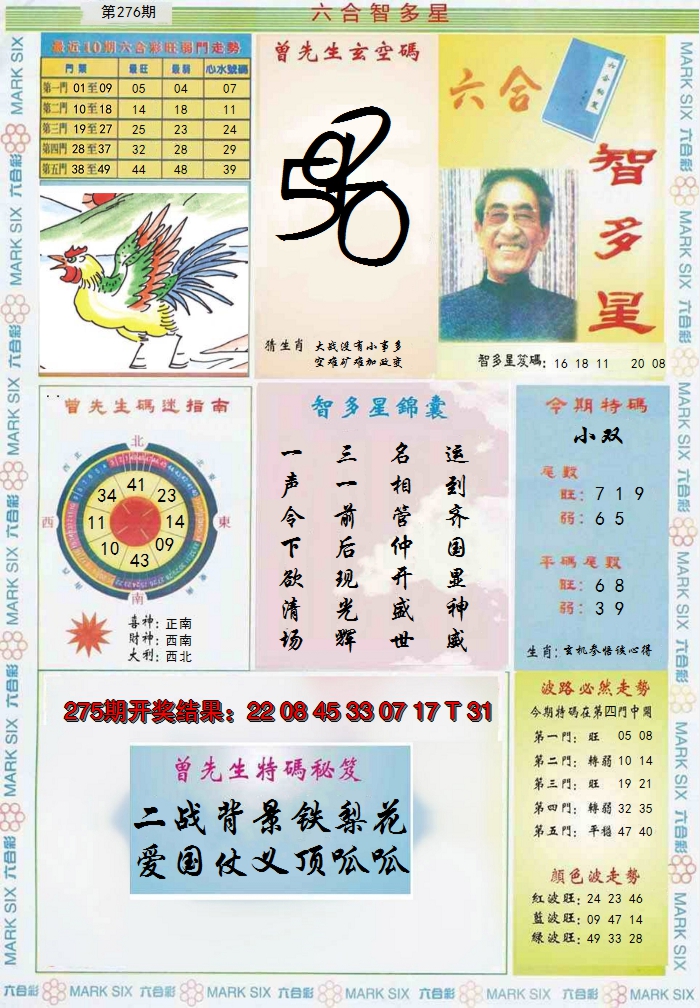 第276期
六合智多星
最近10期六合彩旺弱門走勢
門類 最旺 最弱 心水號碼
第一門 01至09 05 04 07
第二門 10至18 14 18 11
第三門 19至27 25 23 24
第四門 28至37 32 28 29
第五門 38至49 44 48 39
曾先生玄空碼
猜生肖 大战没有小事多
空难矿难加政变
六合
智多星
智多星笈碼: 16 18 11 20 08
曾先生碼迷指南
北
西 東
南
34 41 23
11 14
10 43 09
喜神: 正南
財神: 西南
大利: 西北
智多星錦囊
运到齐国显神威
名相管仲开盛世
三一前后现光辉
一声令下欲清场
今期特碼
小双
尾數
旺: 7 1 9
弱: 6 5
平碼尾數
旺: 6 8
弱: 3 9
生肖: 玄机参悟谈心得
275期开奖结果: 22 08 45 33 07 17 T 31
曾先生特碼秘笈
二战背景铁梨花
爱国仗义顶呱呱
波路必然走勢
今期特碼在第四門中開
第一門: 旺 05 08
第二門: 轉弱 10 14
第三門: 旺 19 21
第四門: 轉弱 32 35
第五門: 平穩 47 40
顏色波走勢
紅波旺: 24 23 46
藍波旺: 09 47 14
綠波旺: 49 33 28
六合彩 MARK SIX 六合彩 MARK SIX 六合彩 MARK SIX 六合彩 MARK SIX 六合彩